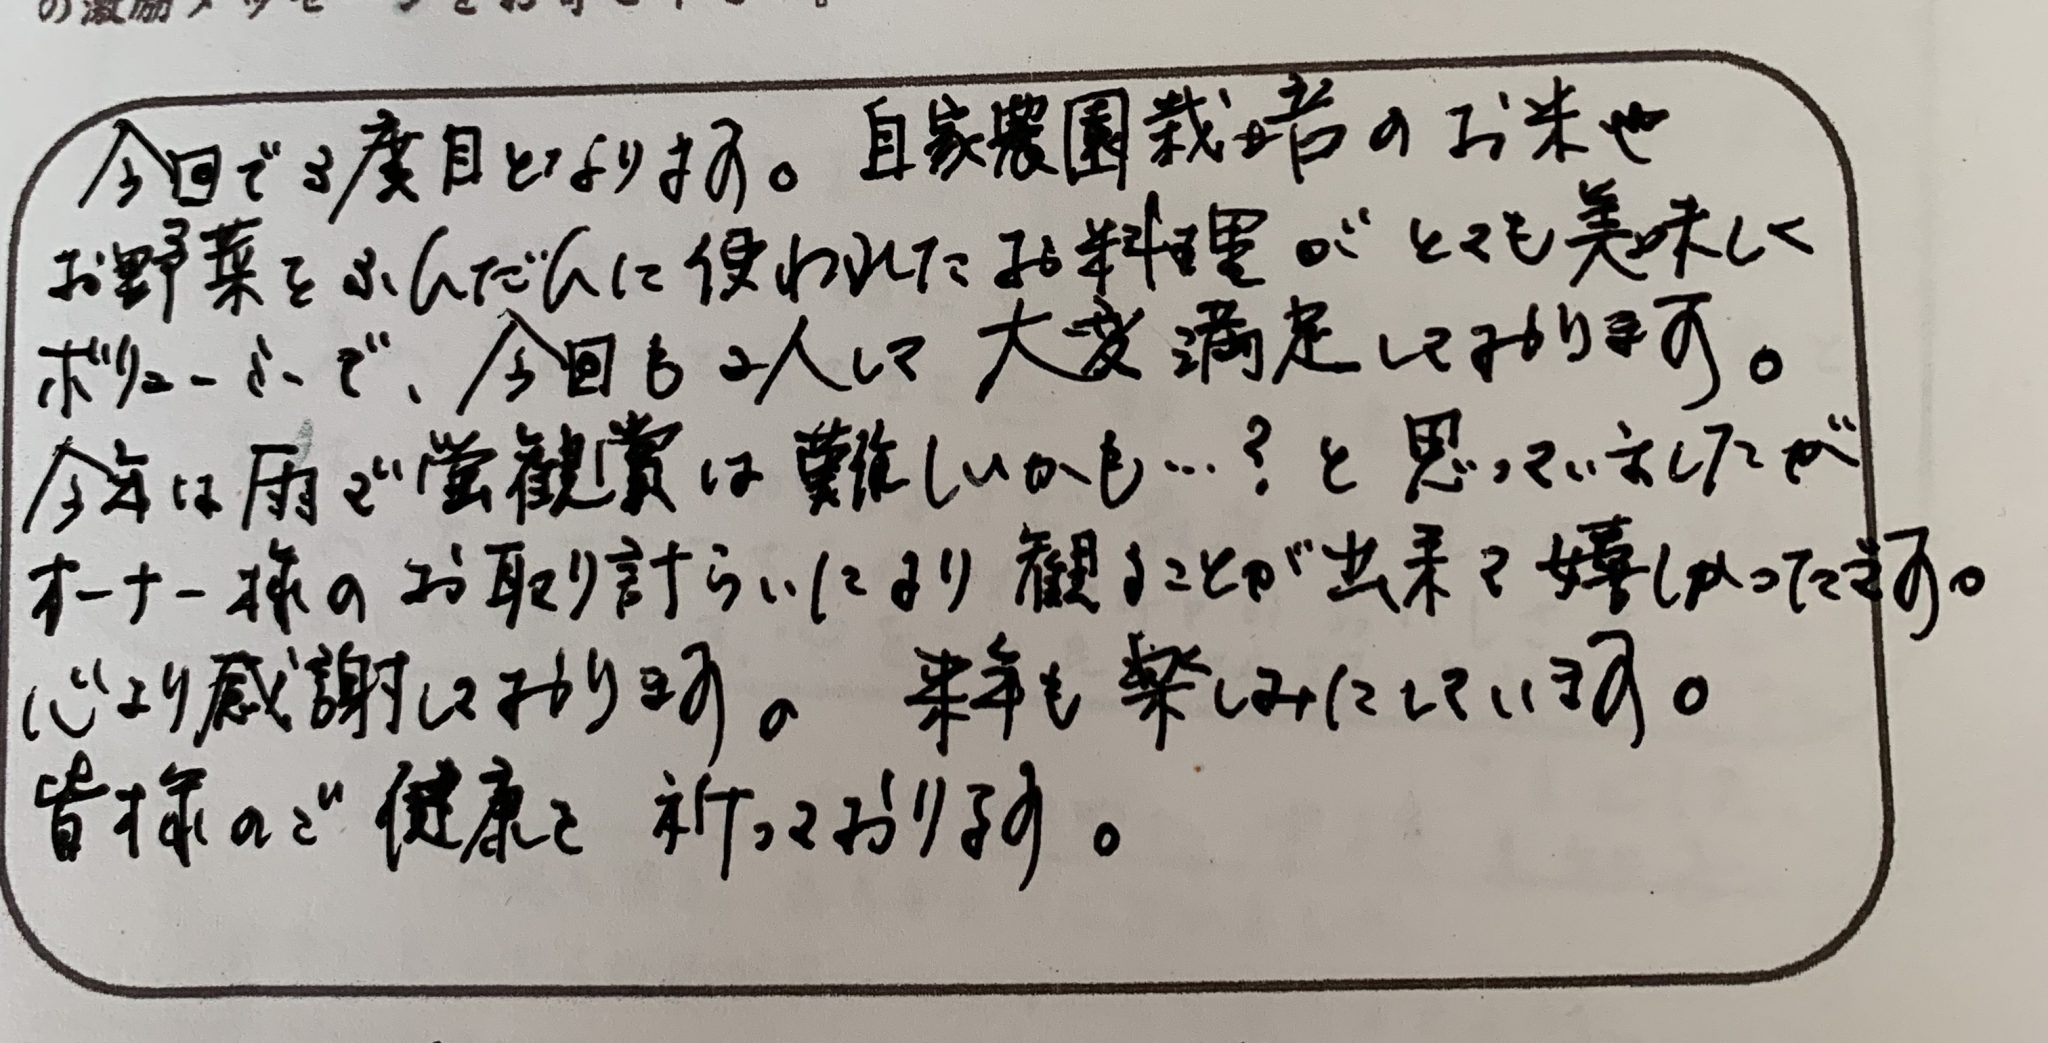 の激励メッセージをお寄せ下さい。
今回で3度目となります。自家農園栽培のお米や
お野菜をふんだんに使われたお料理がとても美味しく
ボリューミーで、今回も2人して大変満足しております。
今年は雨で蛍観賞は難しいかも…?と思っていましたが
オーナー様のお取り計らいにより観ることが出来て嬉しかったです。
心より感謝しております。来年も楽しみにしています。
皆様のご健康を祈っております。